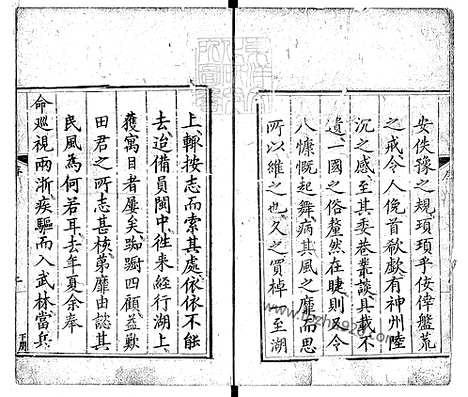 安佚豫之規頊頊乎侫倖盤荒
之戒令人俛首欷歔有神州陸
沉之感至其委巷叢談具載不
遺一國之俗釐然在睫則又令
人慷慨起舞病其風之靡而思
所以維之也久之買棹一至湖
上輙按志而索其處依依不能
去迨備員閩中徃来經行湖上
獲寓目者屢矣踟蹰四顧益歎
田君之所志甚核第靡由諗其
民風為何若耳去年夏余奉
命巡視兩浙疾驅而入武林當兵
序